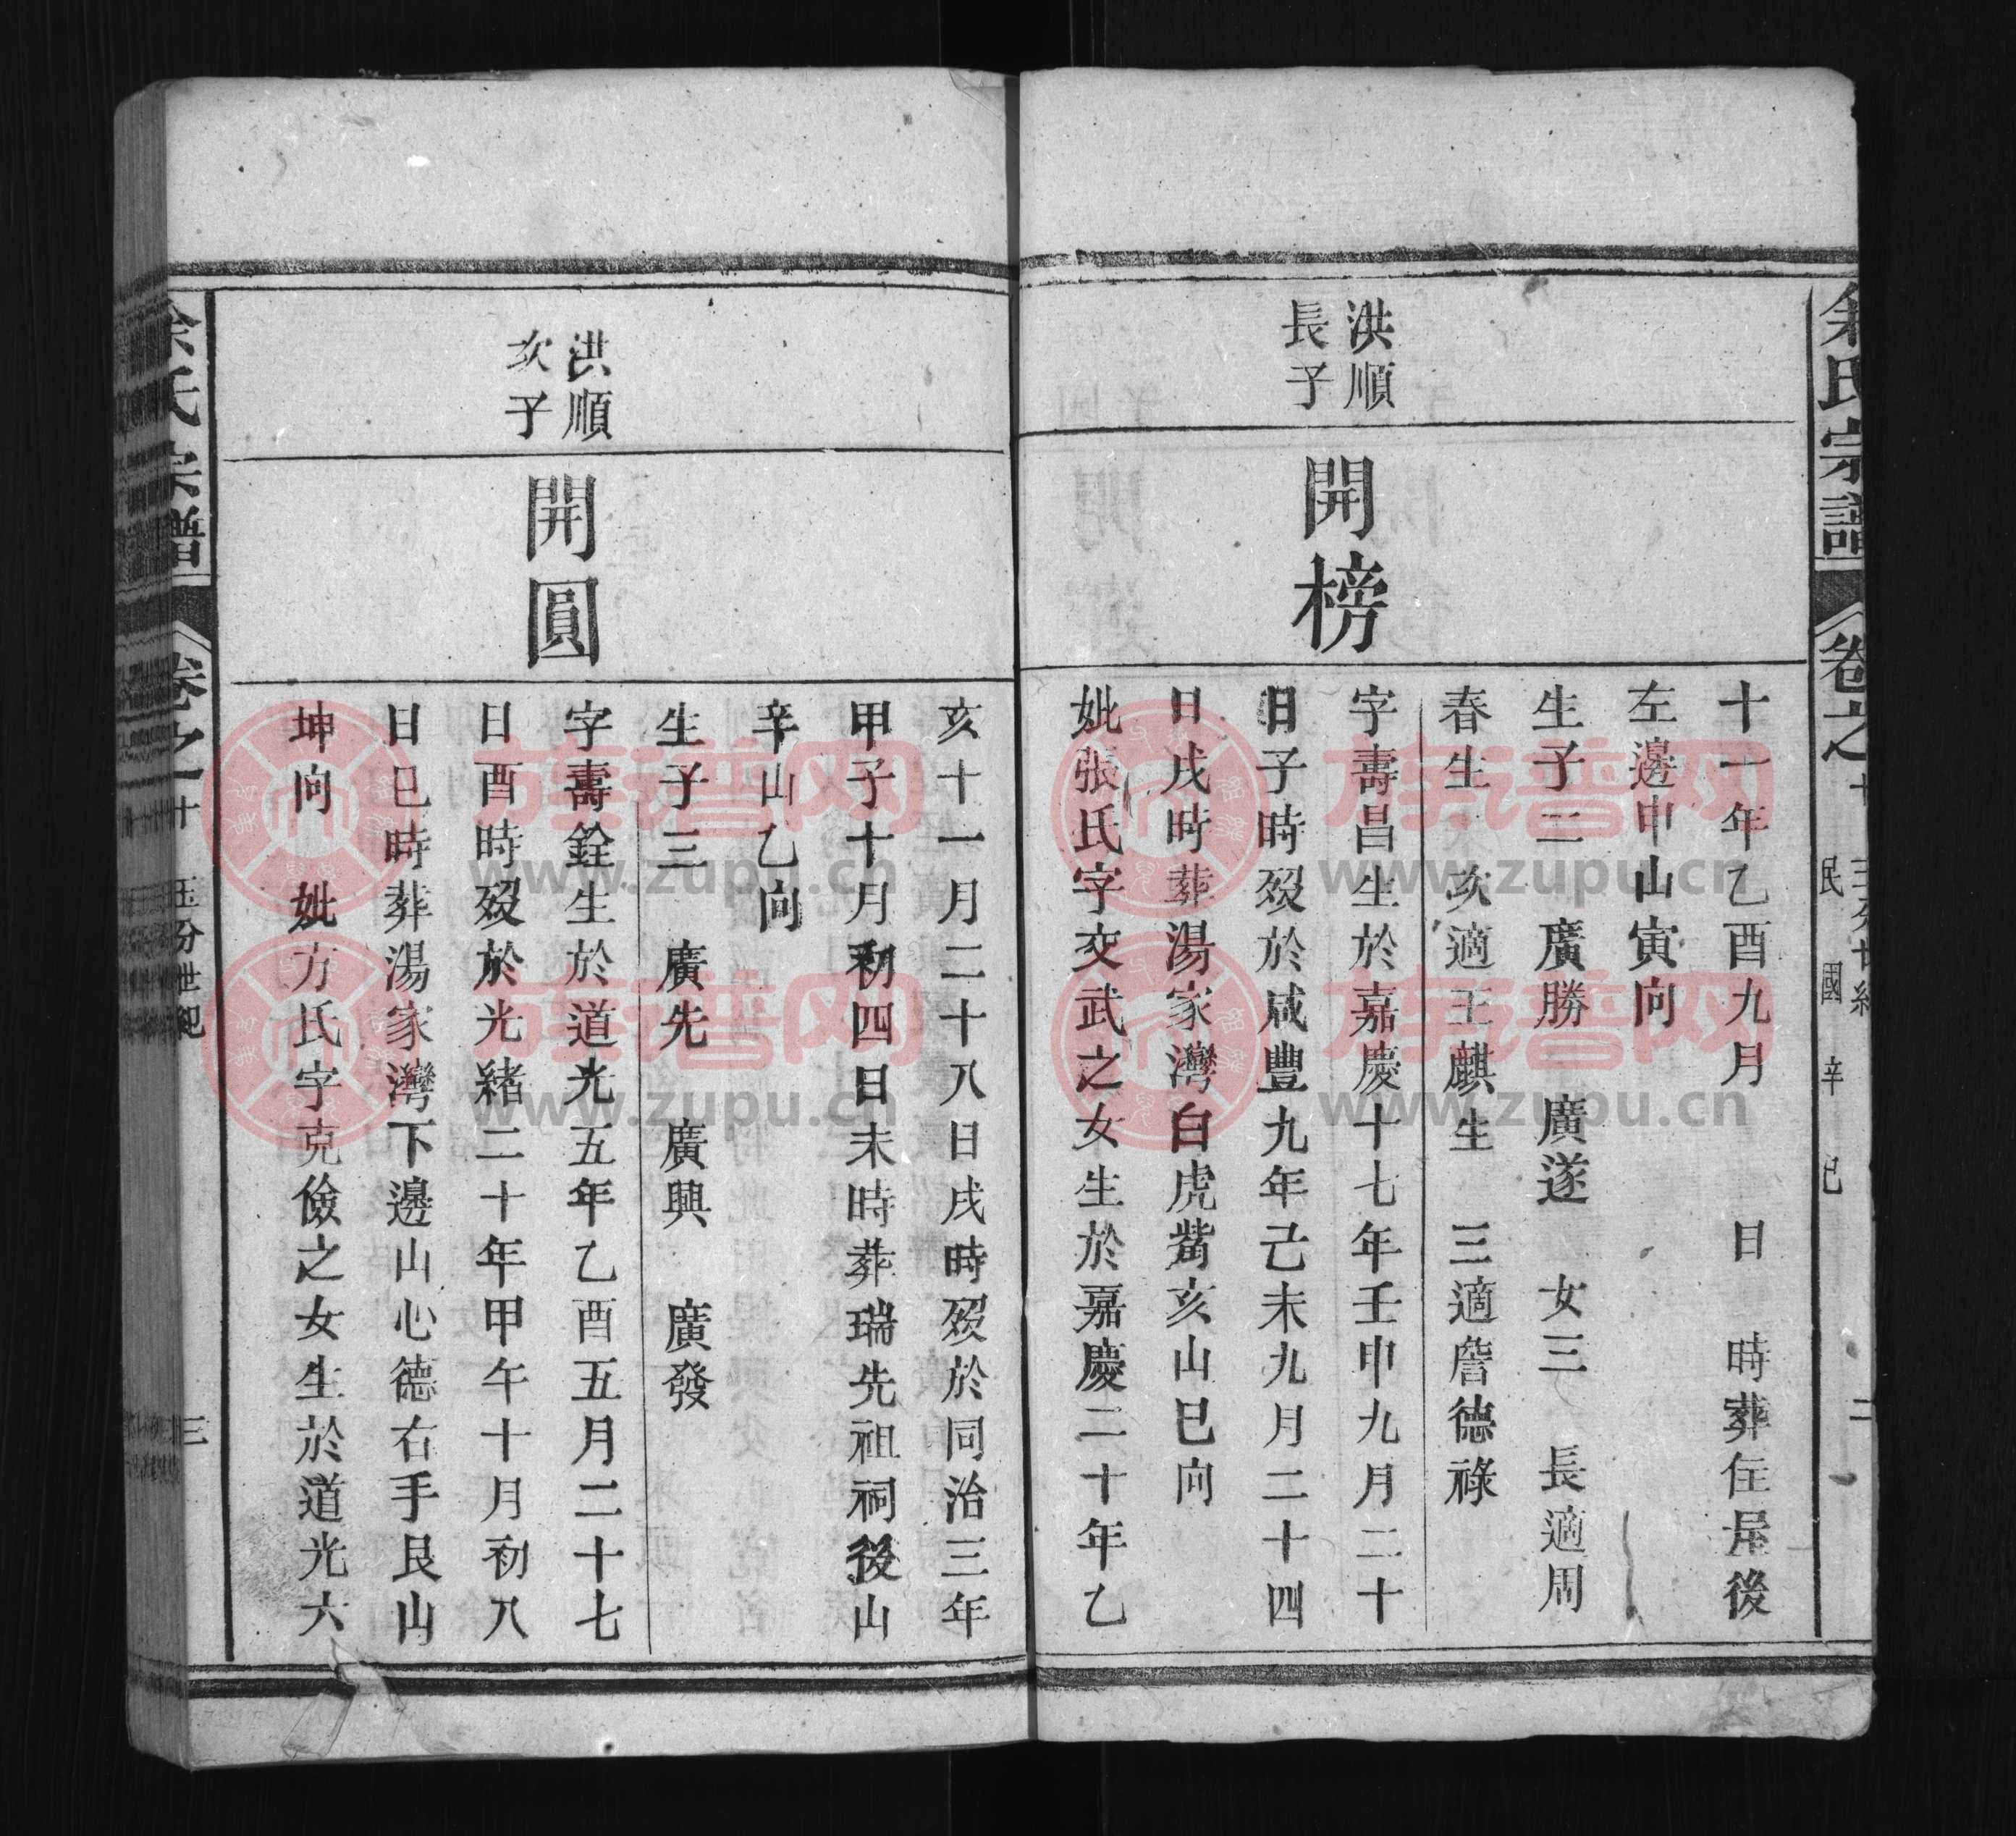 余氏宗譜
卷之十
民國辛巳
二
十一年乙酉九月 日 時葬住屋後
左邊申山寅向
生子二 廣勝 廣遂 女三 長適周
春生 次適王麒生 三適詹德祿
洪順
長子
開榜
字壽昌生於嘉慶十七年壬申九月二十
日子時歿於咸豐九年己未九月二十四
日戌時葬湯家灣白虎嘴亥山巳向
妣張氏字交武之女生於嘉慶二十年乙
亥十一月二十八日戌時歿於同治三年
甲子十月初四日未時葬瑞先祖祠後山
辛山乙向
生子三 廣先 廣興 廣發
洪順
次子
開圓
字壽銓生於道光五年乙酉五月二十七
日酉時歿於光緒二十年甲午十月初八
日巳時葬湯家灣下邊山心德右手艮山
坤向 妣方氏字克儉之女生於道光六
余氏宗譜
卷之十
玉分世紀
三
族谱网
www.zupu.cn
族谱网
www.zupu.cn
族谱网
www.zupu.cn
族谱网
www.zupu.cn